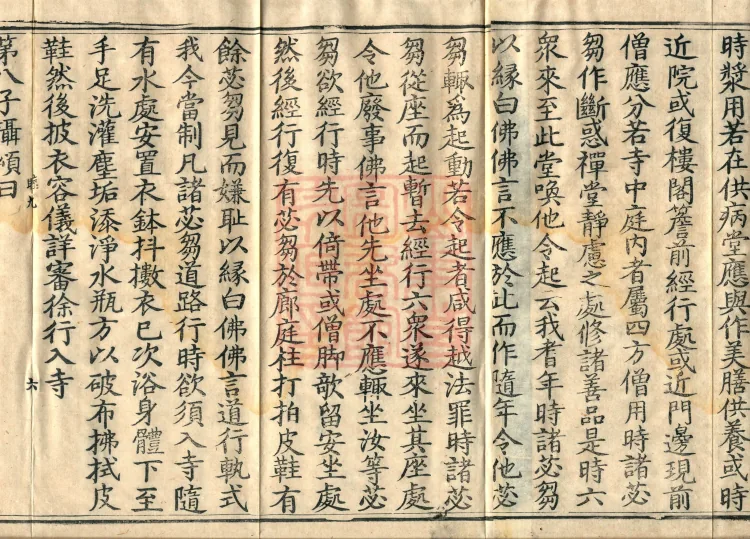 時漿用若在供病堂應與作美膳供養或時
近院或復樓閣簷前經行處或近門邊現前
僧應分若寺中庭內者屬四方僧用時諸苾
芻作斷惑禪堂靜慮之處修諸善品是時六
衆來至此堂喚他令起云我耆年時諸苾芻
以緣白佛佛言不應於此而作隨年令他苾
芻輒爲起動若令起者咸得越法罪時諸苾
芻從座而起暫去經行六衆遂來坐其座處
令他廢事佛言他先坐處不應輒坐汝等苾
芻欲經行時先以倚帶或僧脚敧留安坐處
然後經行復有苾芻於廊庭柱打拍皮鞋有
餘苾芻見而嫌恥以緣白佛佛言道行軌式
我今當制凡諸苾芻道路行時欲須入寺隨
有水處安置衣鉢抖擻衣已次浴身體下至
手足洗灌塵垢添淨水瓶方以破布拂拭皮
鞋然後披衣容儀詳審徐行入寺
九
六
第八子攝頌曰